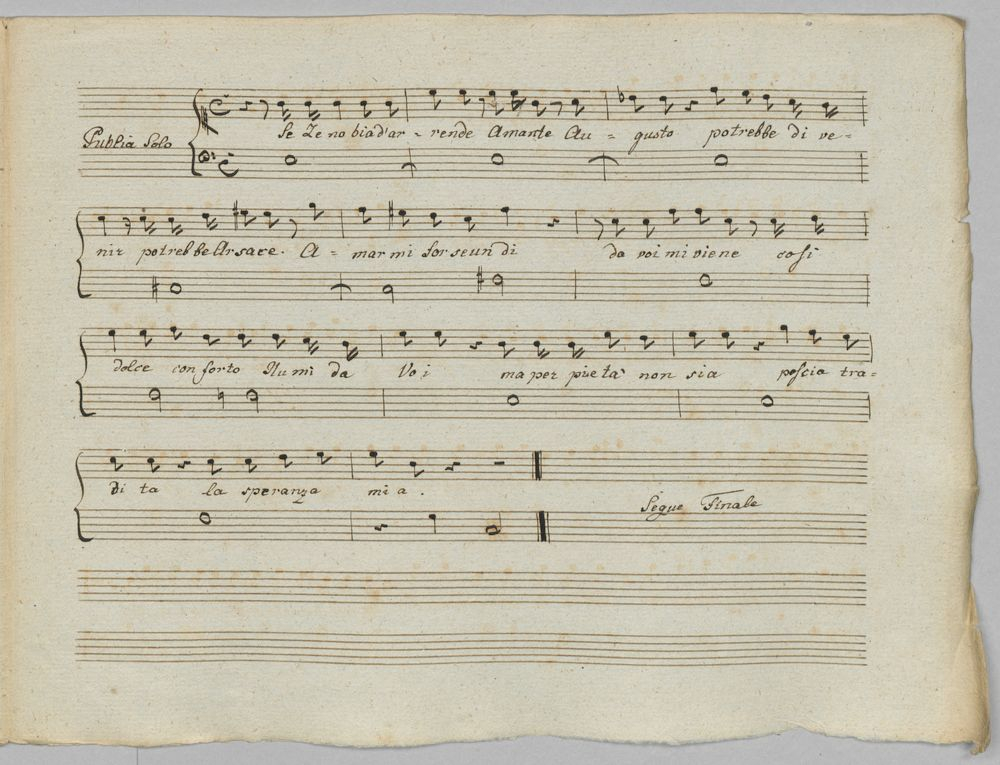 Publia Solo
Se Ze no bia d'ar - rende Amante Au - gusto potrebbe di ve -
nir potrebbe Arsace. A - mar mi forse un di da voi mi viene cosi
dolce conforto Numi da Voi ma per pietà non sia poscia tra =
di ta la speranza mi a.
Segue Finale